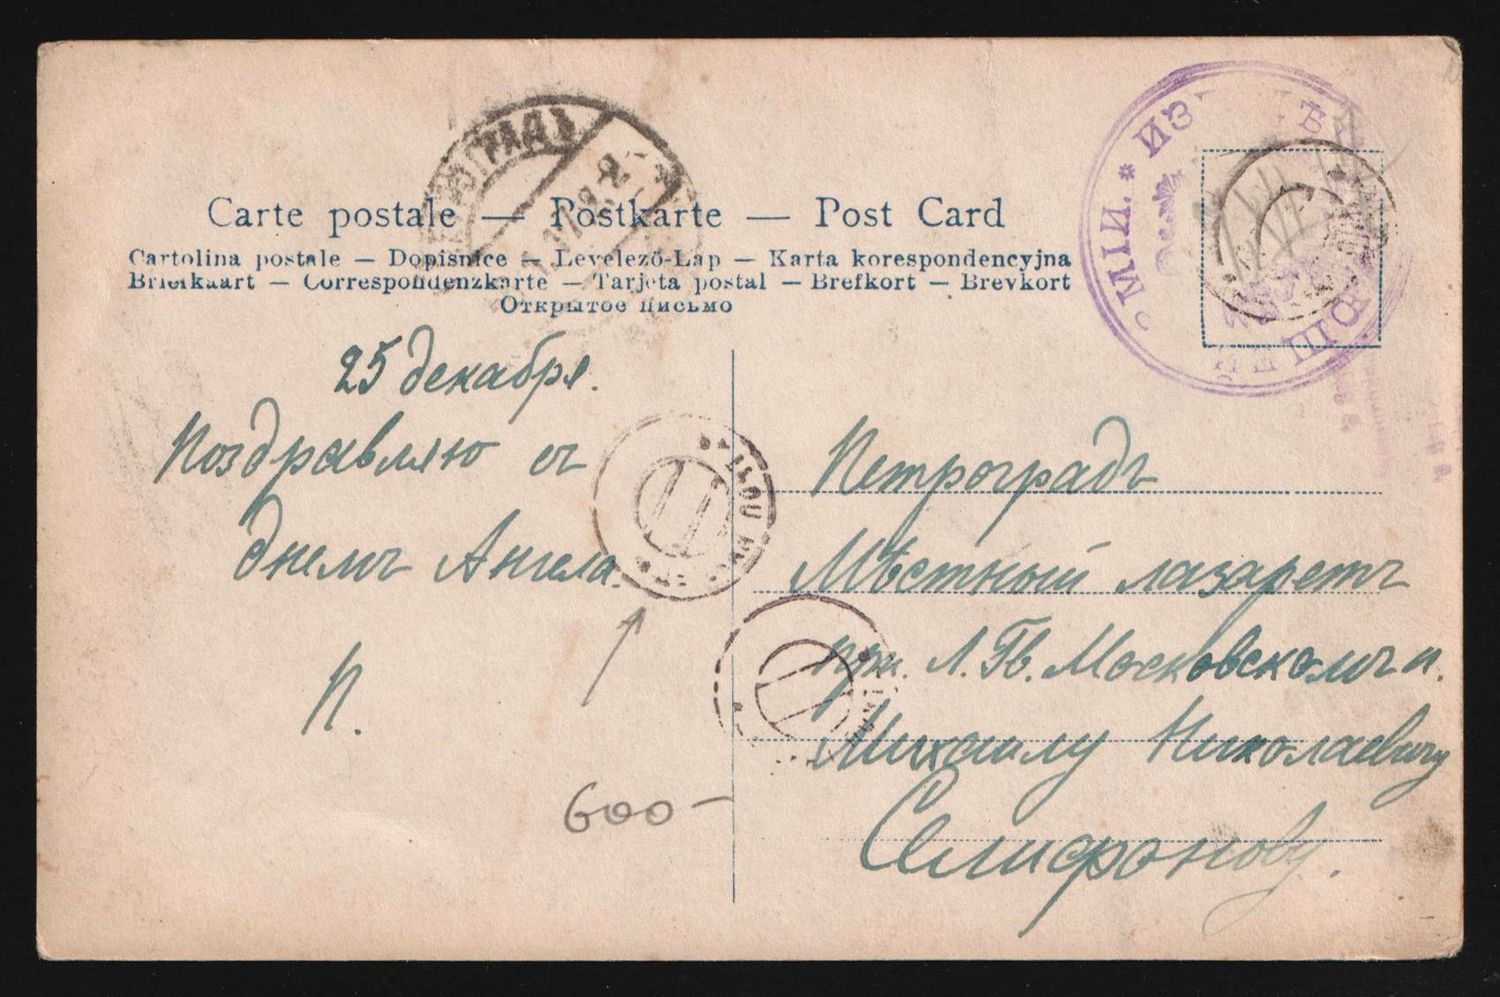 Carte postale — Postkarte — Post Card
Cartolina postale — Dopisnice — Levelező-Lap — Karta korespondencyjna
Briefkaart — Correspondenzkarte — Tarjeta postal — Brefkort — Brevkort
Открытое письмо
25 декабря.
Поздравляю съ
днемъ Ангела.
П.
600 —
Петроградъ
Мѣстный лазаретъ
при Л. Гв. Московскомъ п.
Михаилу Николаевичу